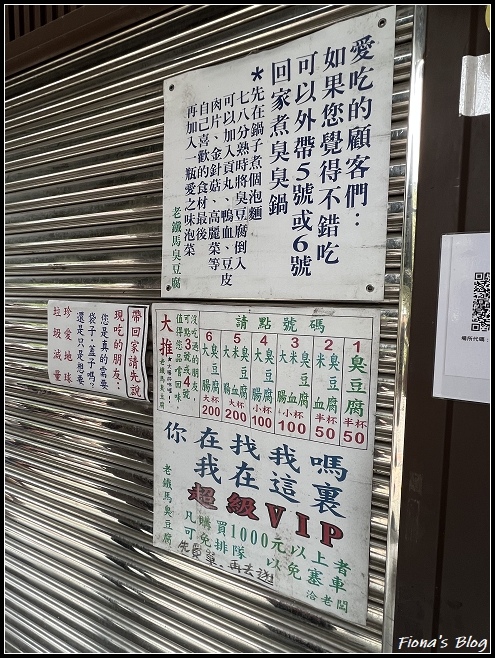 愛吃的顧客們：
如果您覺得不錯吃
可以外帶5號或6號
回家煮臭臭鍋
*先在鍋子煮個泡麵
七八分熟時將臭豆腐倒入
可以加入貢丸、鴨血、豆皮
肉片、金針菇、高麗菜等
自己喜歡的食材最後
再加入一瓶愛之味泡菜
老鐵馬臭豆腐
帶回家請先說
現吃的朋友：
您是真的需要
袋子、蓋子嗎？
還是只是想要
珍愛地球
垃圾減量
請點號碼
1 臭豆腐 半杯 50
2 米血 半杯 50
3 大米血 大杯 100
4 大腸 小杯 100
5 大臭豆腐 大杯 200
6 大腸 大杯 200
沒吃過的朋友
可點3號或4號
值得您品嚐回味！
大推
老鐵馬臭豆腐
你在找我嗎
我在這裏
超級VIP
凡購買1000元以上者
可免排隊 以免塞車
洽老闆
先買單，再去逛
老鐵馬臭豆腐
場所代碼：
Fiona's Blog